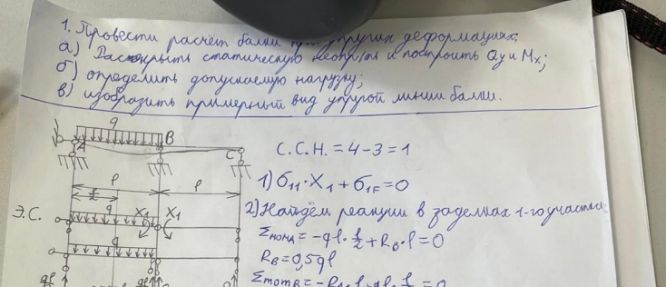 1. Провести расчёт балки при упругих деформациях:
а) Раскрыть статическую неопр-ть и построить Qy и Mx;
б) определить допускаемую нагрузку;
в) изобразить примерный вид упругой линии балки.
q
A B C
С.С.Н. = 4-3=1
l l
1) δ11·X1+δ1F=0
Э.С. q X1 X1
2) Найдём реакции в заделках 1-го участка:
Σмом A = -ql·l/2+RB·l=0
q
RB=0,5ql
ql ql
Σмом B = -RA·l+ql·l/2=0